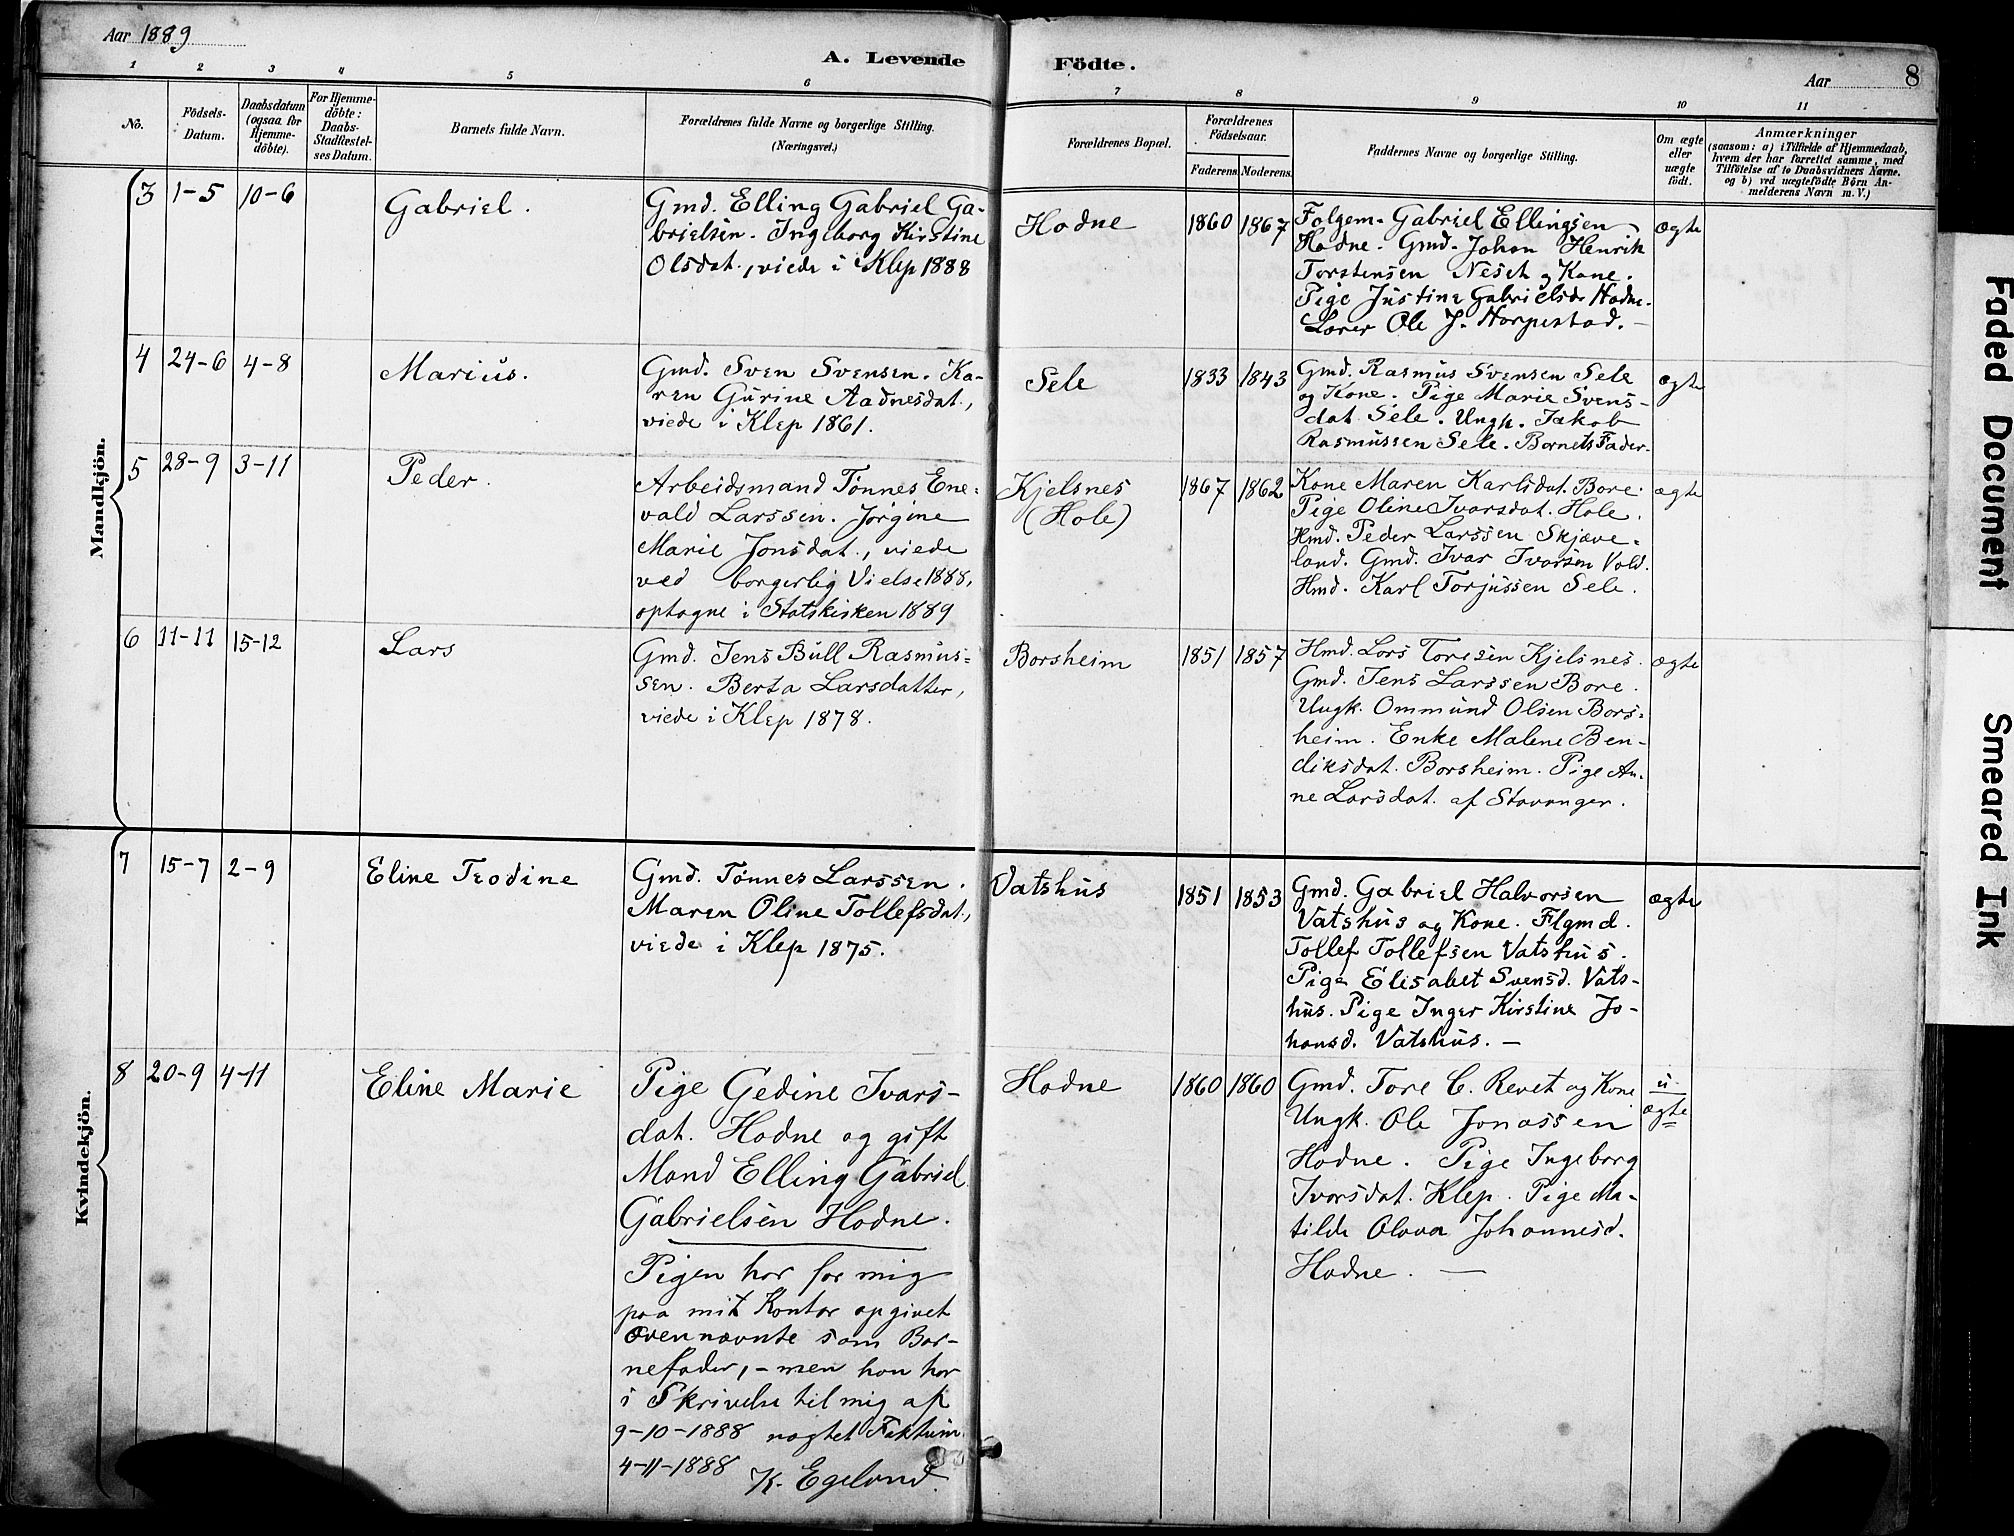 Aar 1889
A. Levende Födte.
Aar 8
1 2 3 4 5 6 7 8 9 10 11
No.
Födsels-
Datum.
Daabsdatum
(ogsaa for
Hjemme-
döbte).
For Hjemme-
döbte:
Daabs-
Stadfæstel-
ses Datum.
Barnets fulde Navn.
Forældrenes fulde Navne og borgerlige Stilling.
(Næringsvei.)
Forældrenes Bopæl.
Forældrenes
Födselsaar.
Faderens Moderens
Faddernes Navne og borgerlige Stilling.
Om ægte
eller
uægte
födt.
Anmærkninger
(saasom: a) i Tilfælde af Hjemmedaab,
hvem der har forrettet samme, med
Tilföielse af to Daabsvidners Navne.
og b) ved uægtefödte Börn An-
melderens Navn m. V.)
Mandkjön.
3 1-5 10-6 Gabriel.
Gmd. Elling Gabriel Ga-
brielsen. Ingeborg Kirstine
Olsdat., viede i Klep 1888
Hodne 1860 1867
Folgem. Gabriel Ellingsen
Hodne. Gmd. Johan Henrik
Torstensen Neset og Kone.
Pige Justine Gabrielsd. Hodne.
Lærer Ole J. Horpestad. -
ægte
4 24-6 4-8 Marius.
Gmd. Sven Svensen. Ka-
ren Gurine Aadnesdat.,
viede i Klep 1861.
Sele 1833 1843
Gmd. Rasmus Svensen Sele
og Kone. Pige Marie Svens-
dat. Sele. Ungk. Jakob
Rasmussen Sele. Barnets Fader.
ægte
5 28-9 3-11 Peder.
Arbeidsmand Tönnes Ene-
vald Larssen. Jörgine
Marie Jonsdat., viede
ved borgerlig Vielse 1888,
optagne i Statskirken 1889
Kjelsnes
(Hole)
1867 1862
Kone Maren Karlsdat. Bore.
Pige Oline Ivarsdat. Hole.
Hmd. Peder Larssen Skjæve-
land. Gmd. Ivar Ivarsen Vold.
Hmd. Karl Torjussen Sele.
ægte
6 11-11 15-12 Lars
Gmd. Jens Bull Rasmus-
sen. Berta Larsdatter,
viede i Klep 1878.
Borsheim 1851 1857
Hmd. Lars Toresen Kjelsnes.
Gmd. Jens Larssen Bore.
Ungk. Ommund Olsen Bors-
heim. Enke Malene Ben-
diksdat. Borsheim. Pige An-
ne Larsdat. af Stavanger.
ægte
Kvindekjön.
7 15-7 2-9 Eline Teodine
Gmd. Tönnes Larssen.
Maren Oline Tollefsdat.,
viede i Klep 1875.
Vatshus 1851 1853
Gmd. Gabriel Halvorsen
Vatshus og Kone. Flgmd.
Tollef Tollefsen Vatshus.
Pige Elisabet Svensd. Vats-
hus. Pige Inger Kirstine Jo-
hansd. Vatshus. -
ægte
8 20-9 4-11 Eline Marie
Pige Gedine Ivars-
dat. Hodne og gift
Mand Elling Gabriel
Gabrielsen Hodne.
Pigen har for mig
paa mit Kontor opgivet
ovennævnte som Bar-
nefader, - men han har
i Skrivelse til mig af
9-10-1888 nægtet Faktum.
4-11-1888 K. Egeland.
Hodne 1860 1860
Gmd. Tore C. Revet og Kone
Ungk. Ole Jonassen
Hodne. Pige Ingeborg
Ivarsdat. Klep. Pige Ma-
tilde Olava Johannesd.
Hodne. -
u-
ægte
Faded Document
Smeared Ink